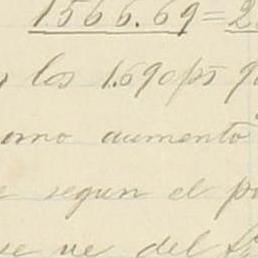 1566.69 = 2
los 1.690 ps
omo aumento
segun el p
ue ve del